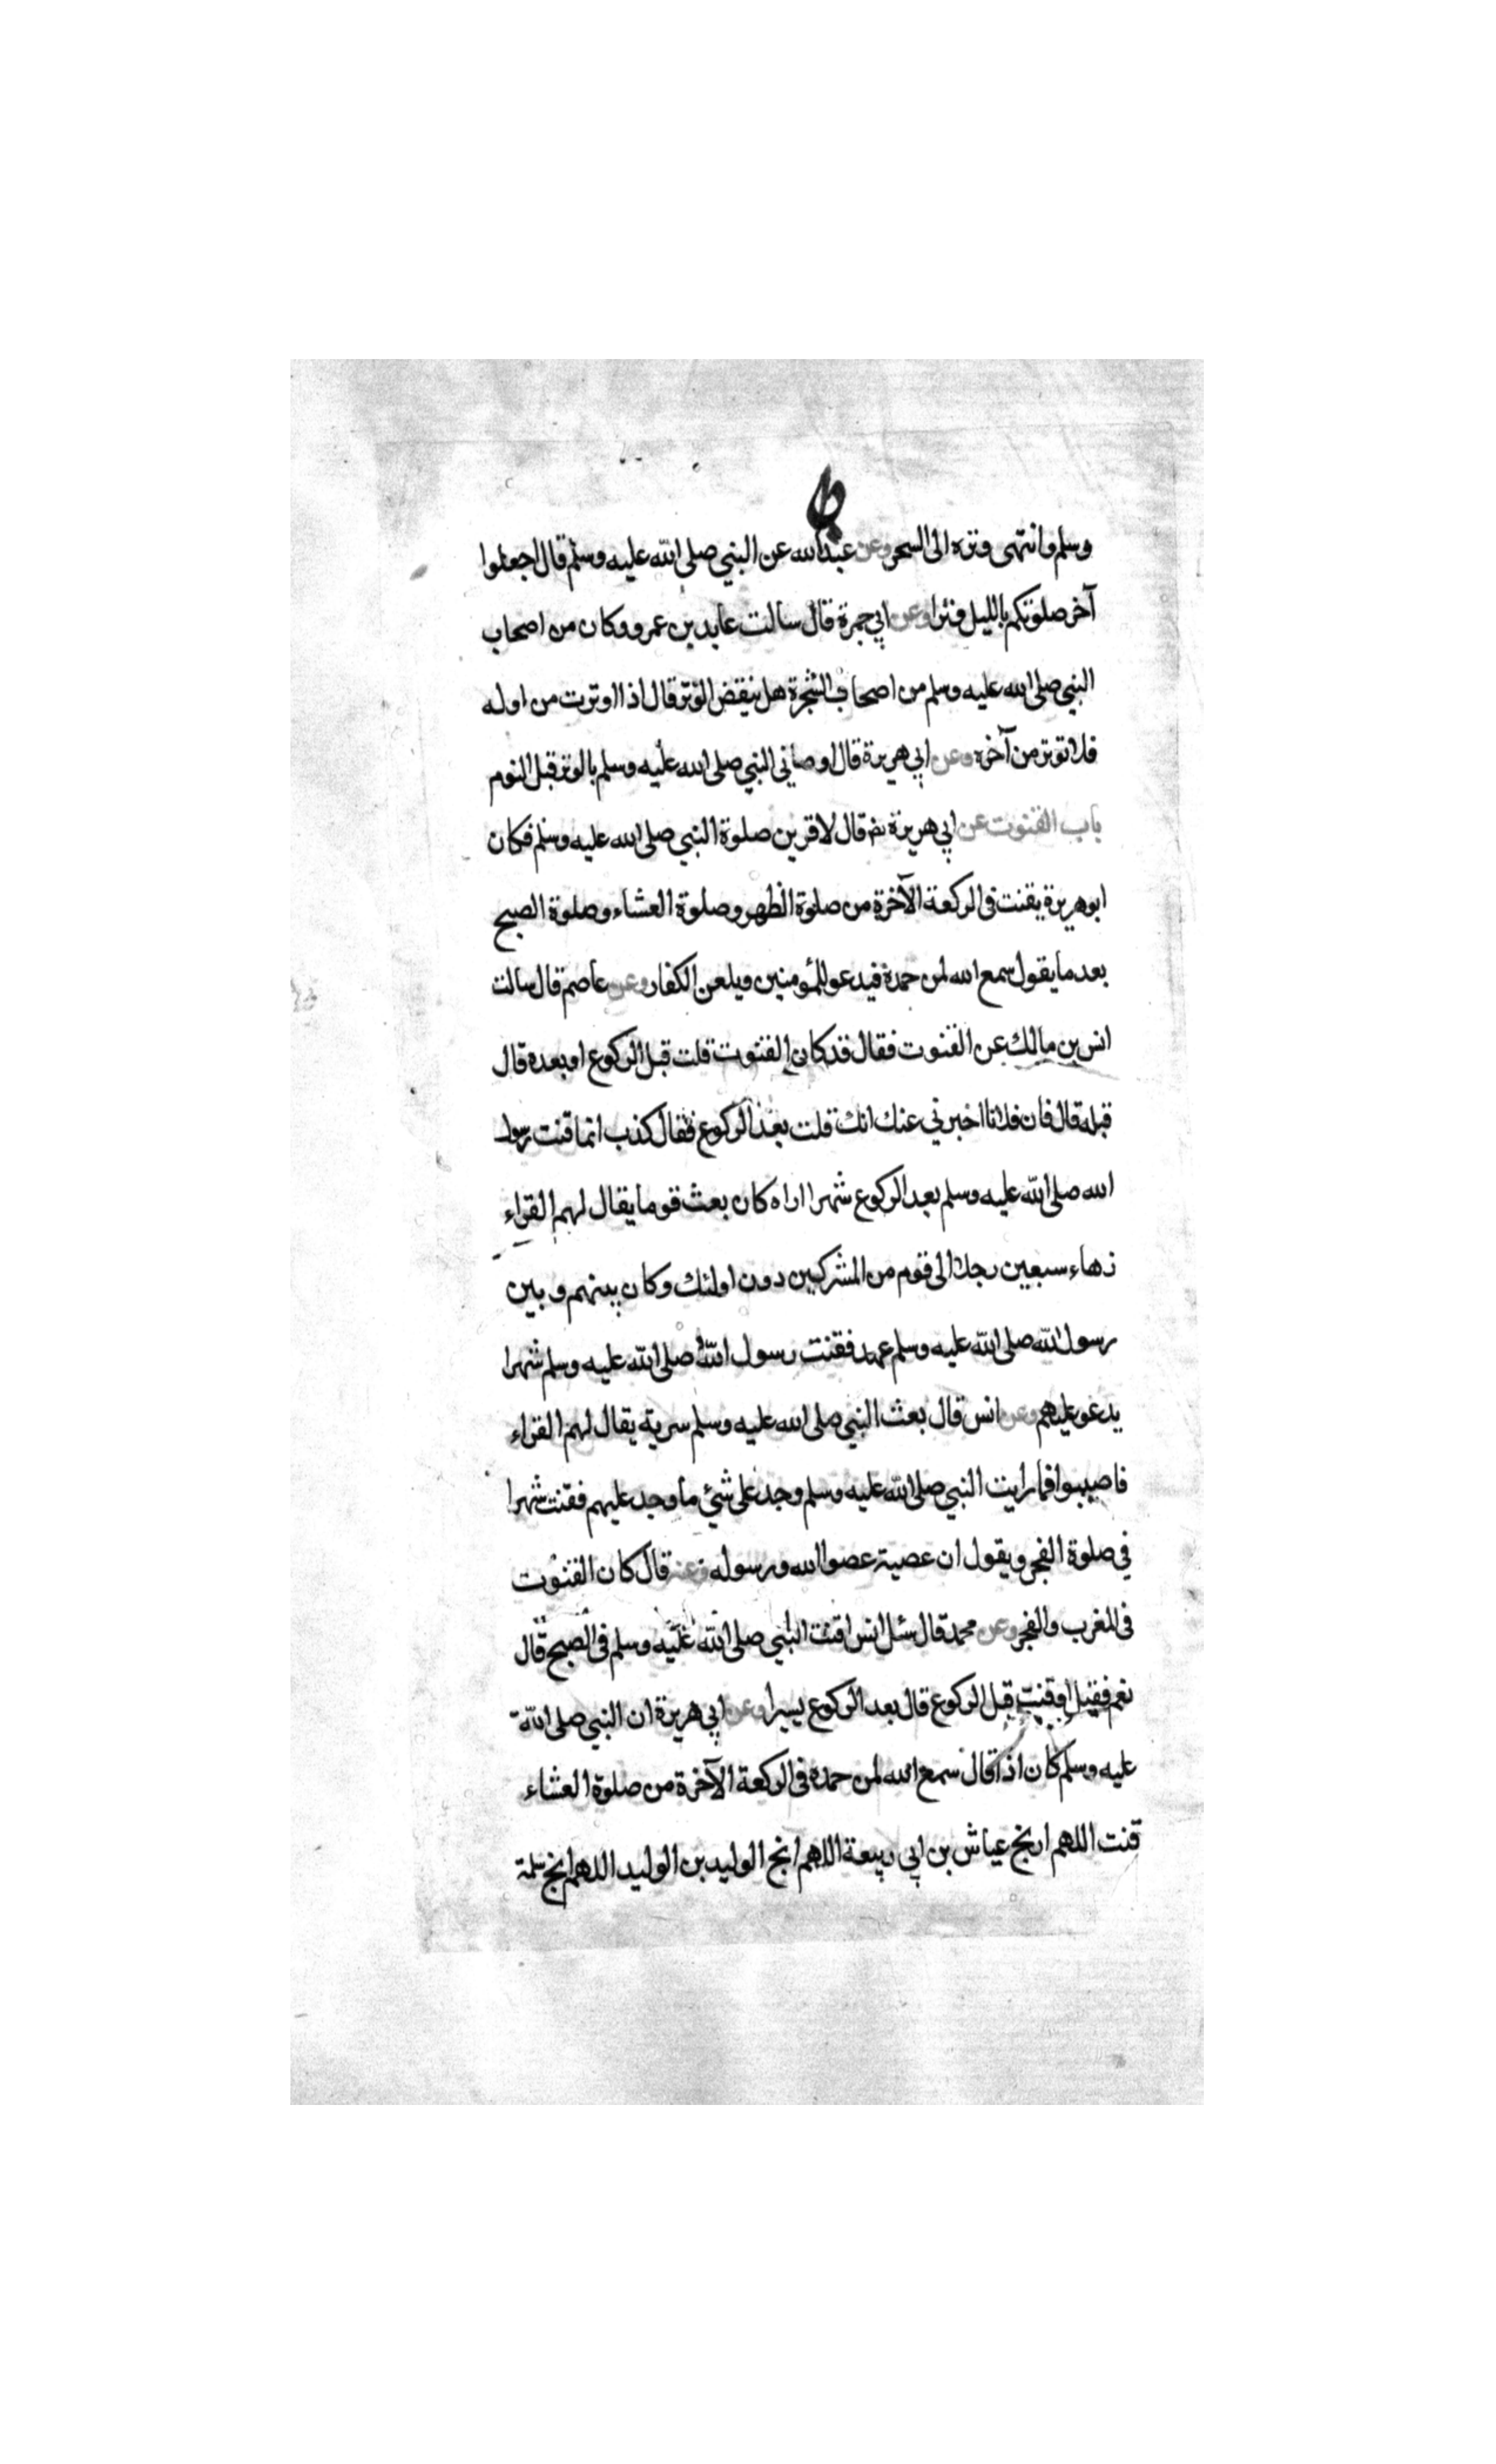 وسلم وانتهى وتره الى السحر وعن عبدالله عن النبي صلى الله عليه وسلم قال اجعلوا
آخر صلوتكم بالليل وترا وعن ابي جمرة قال سالت عايد بن عمرو وكان من اصحاب
النبي صلى الله عليه وسلم من اصحاب الشجرة هل ينقض الوتر قال اذا اوترت من اوله
فلا توتر من آخره وعن ابي هريرة قال اوصاني النبي صلى الله عليه وسلم بالوتر قبل النوم
باب القنوت عن ابي هريرة رضه قال لاقربن صلوة النبي صلى الله عليه وسلم فكان
ابو هريرة يقنت في الركعة الآخرة من صلوة الظهر وصلوة العشاء وصلوة الصبح
بعد ما يقول سمع الله لمن حمده فيدعو للمؤمنين ويلعن الكفار وعن عاصم قال سالت
انس بن مالك عن القنوت فقال قد كان القنوت قلت قبل الركوع او بعده قال
قبله قال فان فلانا اخبرني عنك انك قلت بعد الركوع فقال كذب انما قنت رسول
الله صلى الله عليه وسلم بعد الركوع شهرا اراه كان بعث قوما يقال لهم القراء
زهاء سبعين رجلا الى قوم من المشركين دون اولئك وكان بينهم وبين
رسول الله صلى الله عليه وسلم عهد فقنت رسول الله صلى الله عليه وسلم شهرا
يدعو عليهم وعن انس قال بعث النبي صلى الله عليه وسلم سرية يقال لهم القراء
فاصيبوا فما رايت النبي صلى الله عليه وسلم وجد على شئ ما وجد عليهم فقنت شهرا
في صلوة الفجر ويقول ان عصية عصوا الله ورسوله وعنه قال كان القنوت
في المغرب والفجر وعن محمد قال سئل انس اقنت النبي صلى الله عليه وسلم في الصبح قال
نعم فقيل اوقنت قبل الركوع قال بعد الركوع يسيرا وعن ابي هريرة ان النبي صلى الله
عليه وسلم كان اذا قال سمع الله لمن حمده في الركعة الآخرة من صلوة العشاء
قنت اللهم انج عياش بن ابي ربيعة اللهم انج الوليد بن الوليد اللهم انج سلمة